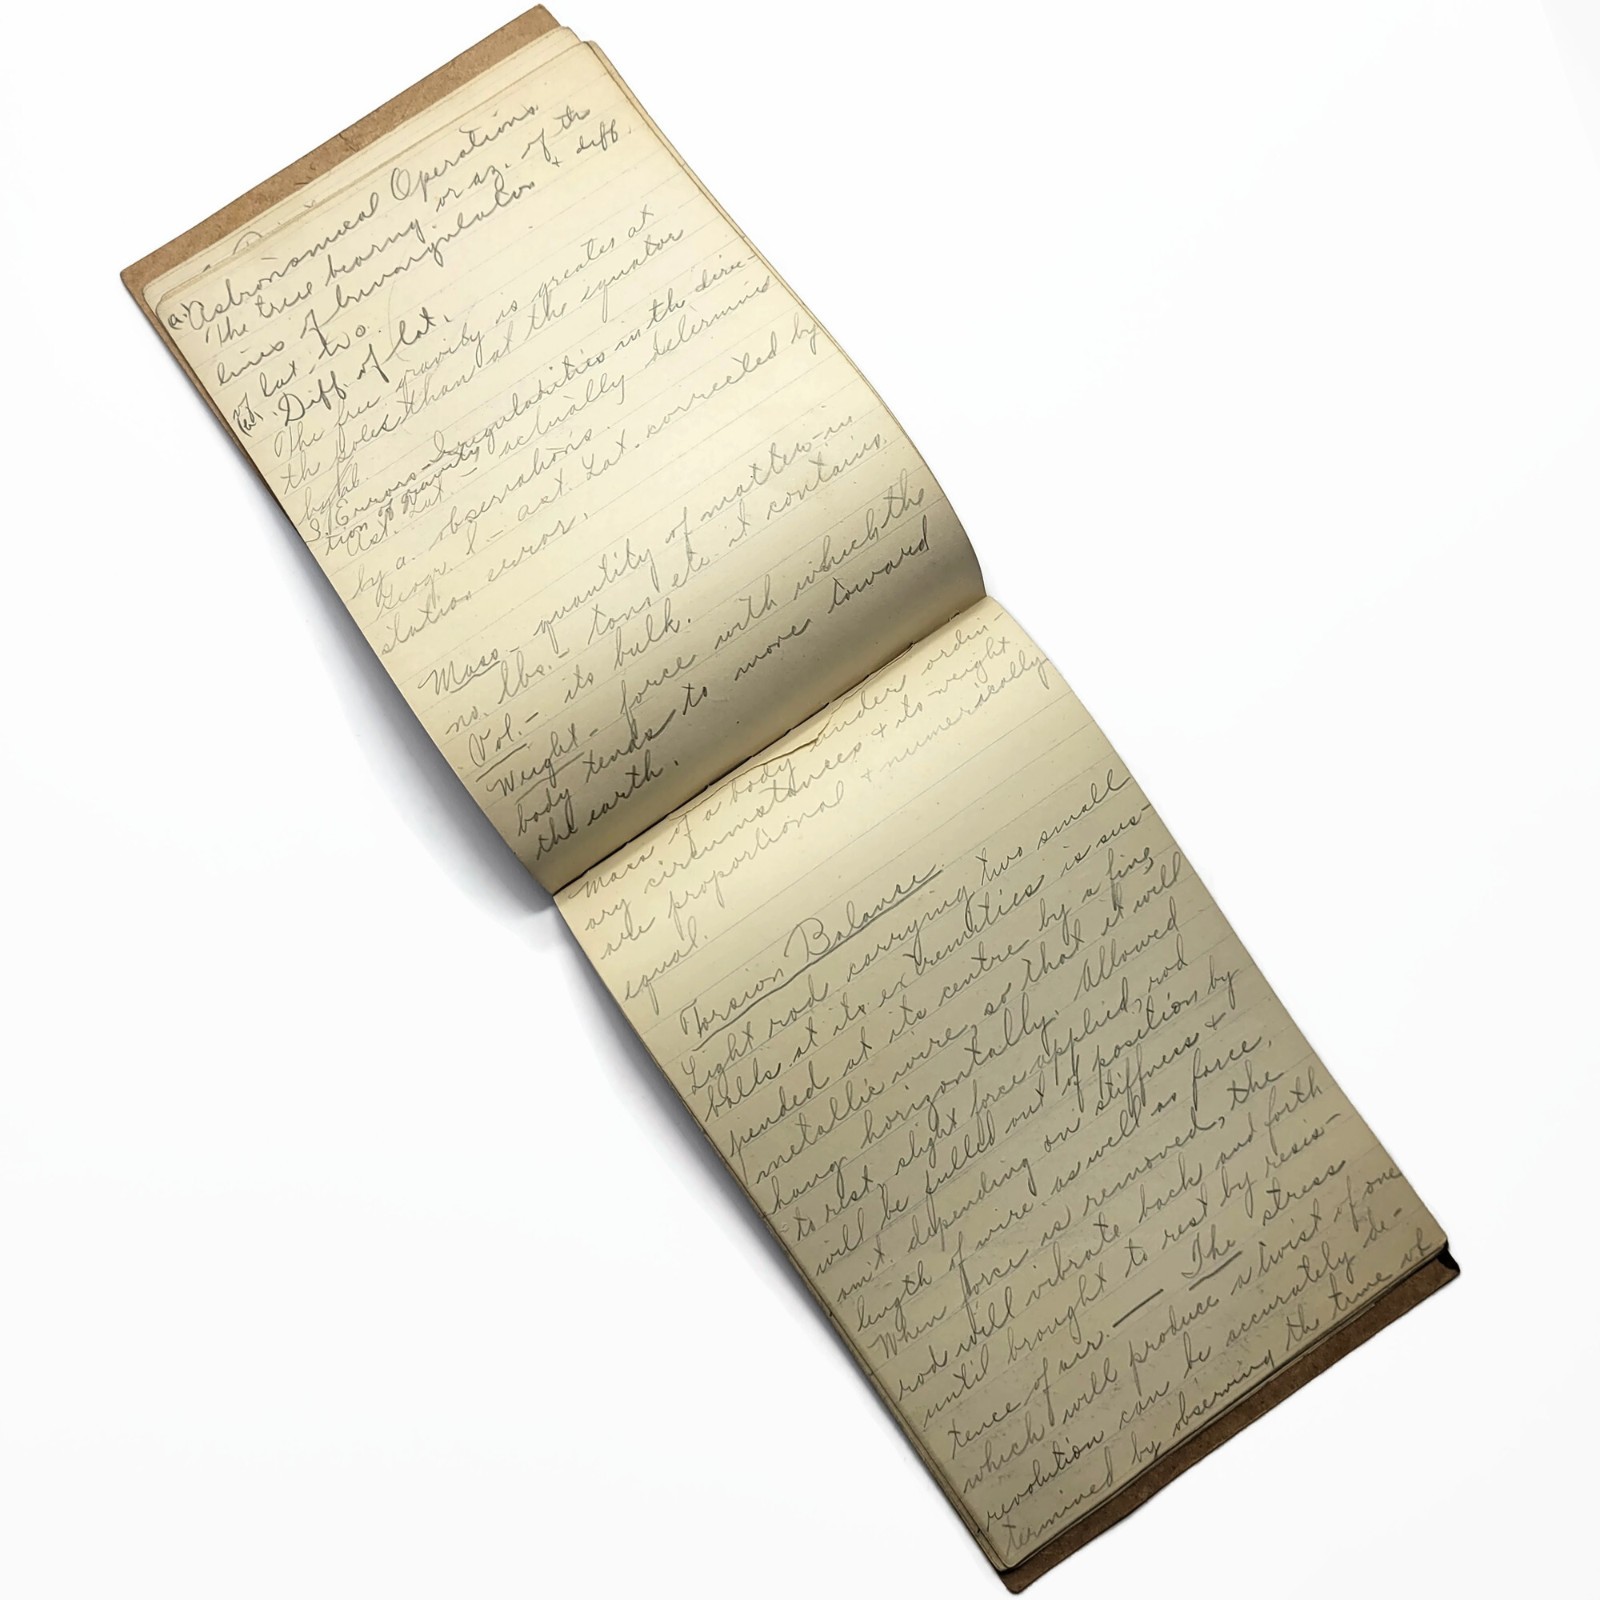 (a.) Astronomical Operations.
The true bearing or az. of the
lines of triangulation & diff.
of lat. two.
(b). Diff. of lat.
The free gravity is greates at
the poles than at the equator
by
S. Errors - Irregularities in the direc-
tion of gravity
Ast. Lat. - actually determined
by a. observations.
Geogr. l - ast. Lat. corrected by
station error.
Mass - quantity of matter - in
no. lbs. - tons etc. it contains.
Vol. - its bulk.
Weight - force with which the
body tends to move toward
the earth.
Mass of a body under ordin-
ary circumstances & its weight
are proportional & numerically
equal.
Torsion Balance.
Light rod carrying two small
balls at its extremities is sus-
pended at its centre by a fine
metallic wire, so that it will
hang horizontally. Allowed
to rest, slight force applied, rod
will be pulled out of position by
amt. depending on stiffness &
length of wire as well as force.
When force is removed, the
rod will vibrate back and forth
until brought to rest by resis-
tence of air. — The stress
which will produce a twist of one
revolution can be accurately de-
termined by observing the time of